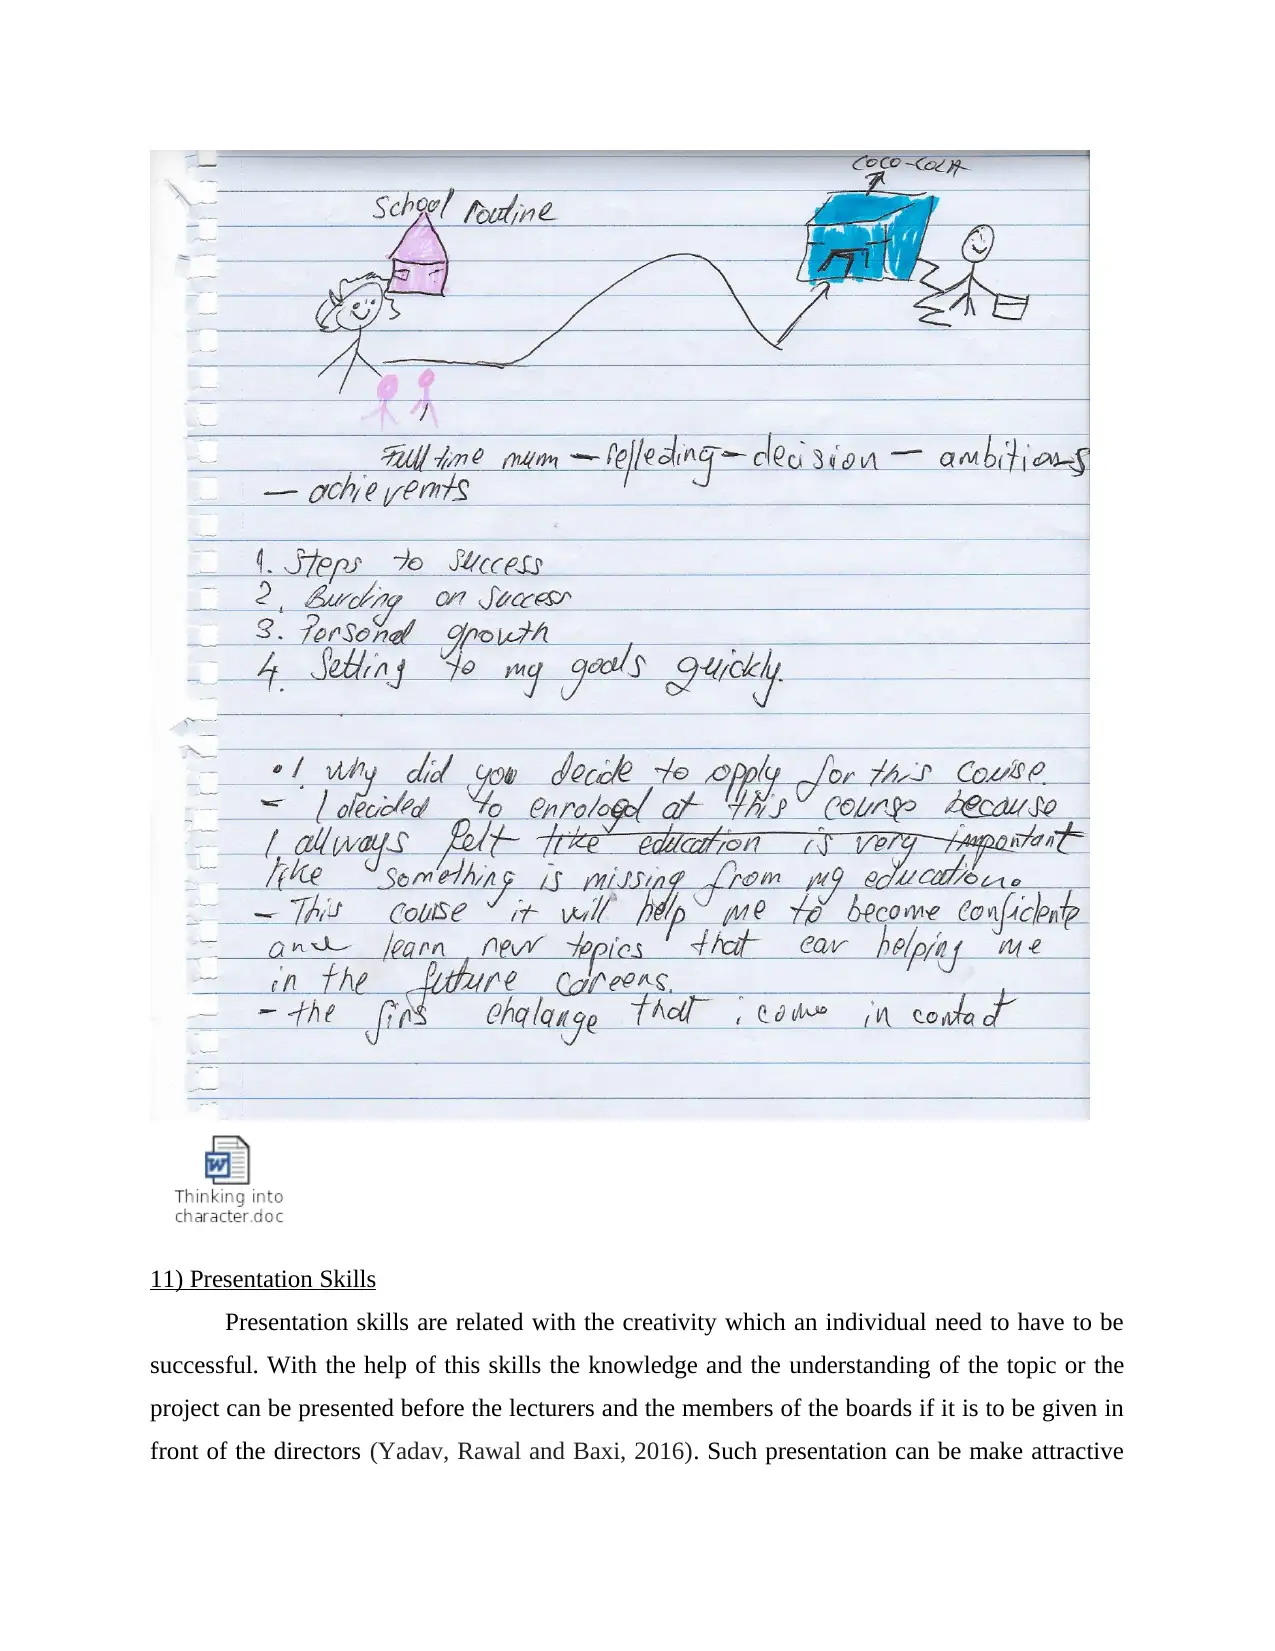 COCO-COLA
School routine
Full time mum — reflecting — decision — ambitions
— achievemts
1. Steps to success
2. Burding on success
3. Personal growth
4. Setting to my goals quickly.
• ! Why did you decide to apply for this course.
– I decided to enrologd at this course because
I allways felt like education is very important
like something is missing from my education.
– This course it will help me to become confidente
and learn new topics that can helping me
in the future careers.
– the firs chalange that i come in contact
Thinking into
character.doc
11) Presentation Skills
Presentation skills are related with the creativity which an individual need to have to be
successful. With the help of this skills the knowledge and the understanding of the topic or the
project can be presented before the lecturers and the members of the boards if it is to be given in
front of the directors (Yadav, Rawal and Baxi, 2016). Such presentation can be make attractive